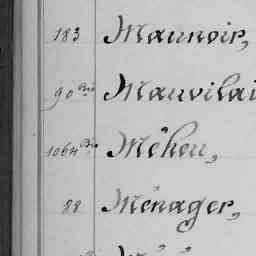 183 Maunoir,
90 Bis Mauvilai
1064 Bis Méheu,
88 Ménager,